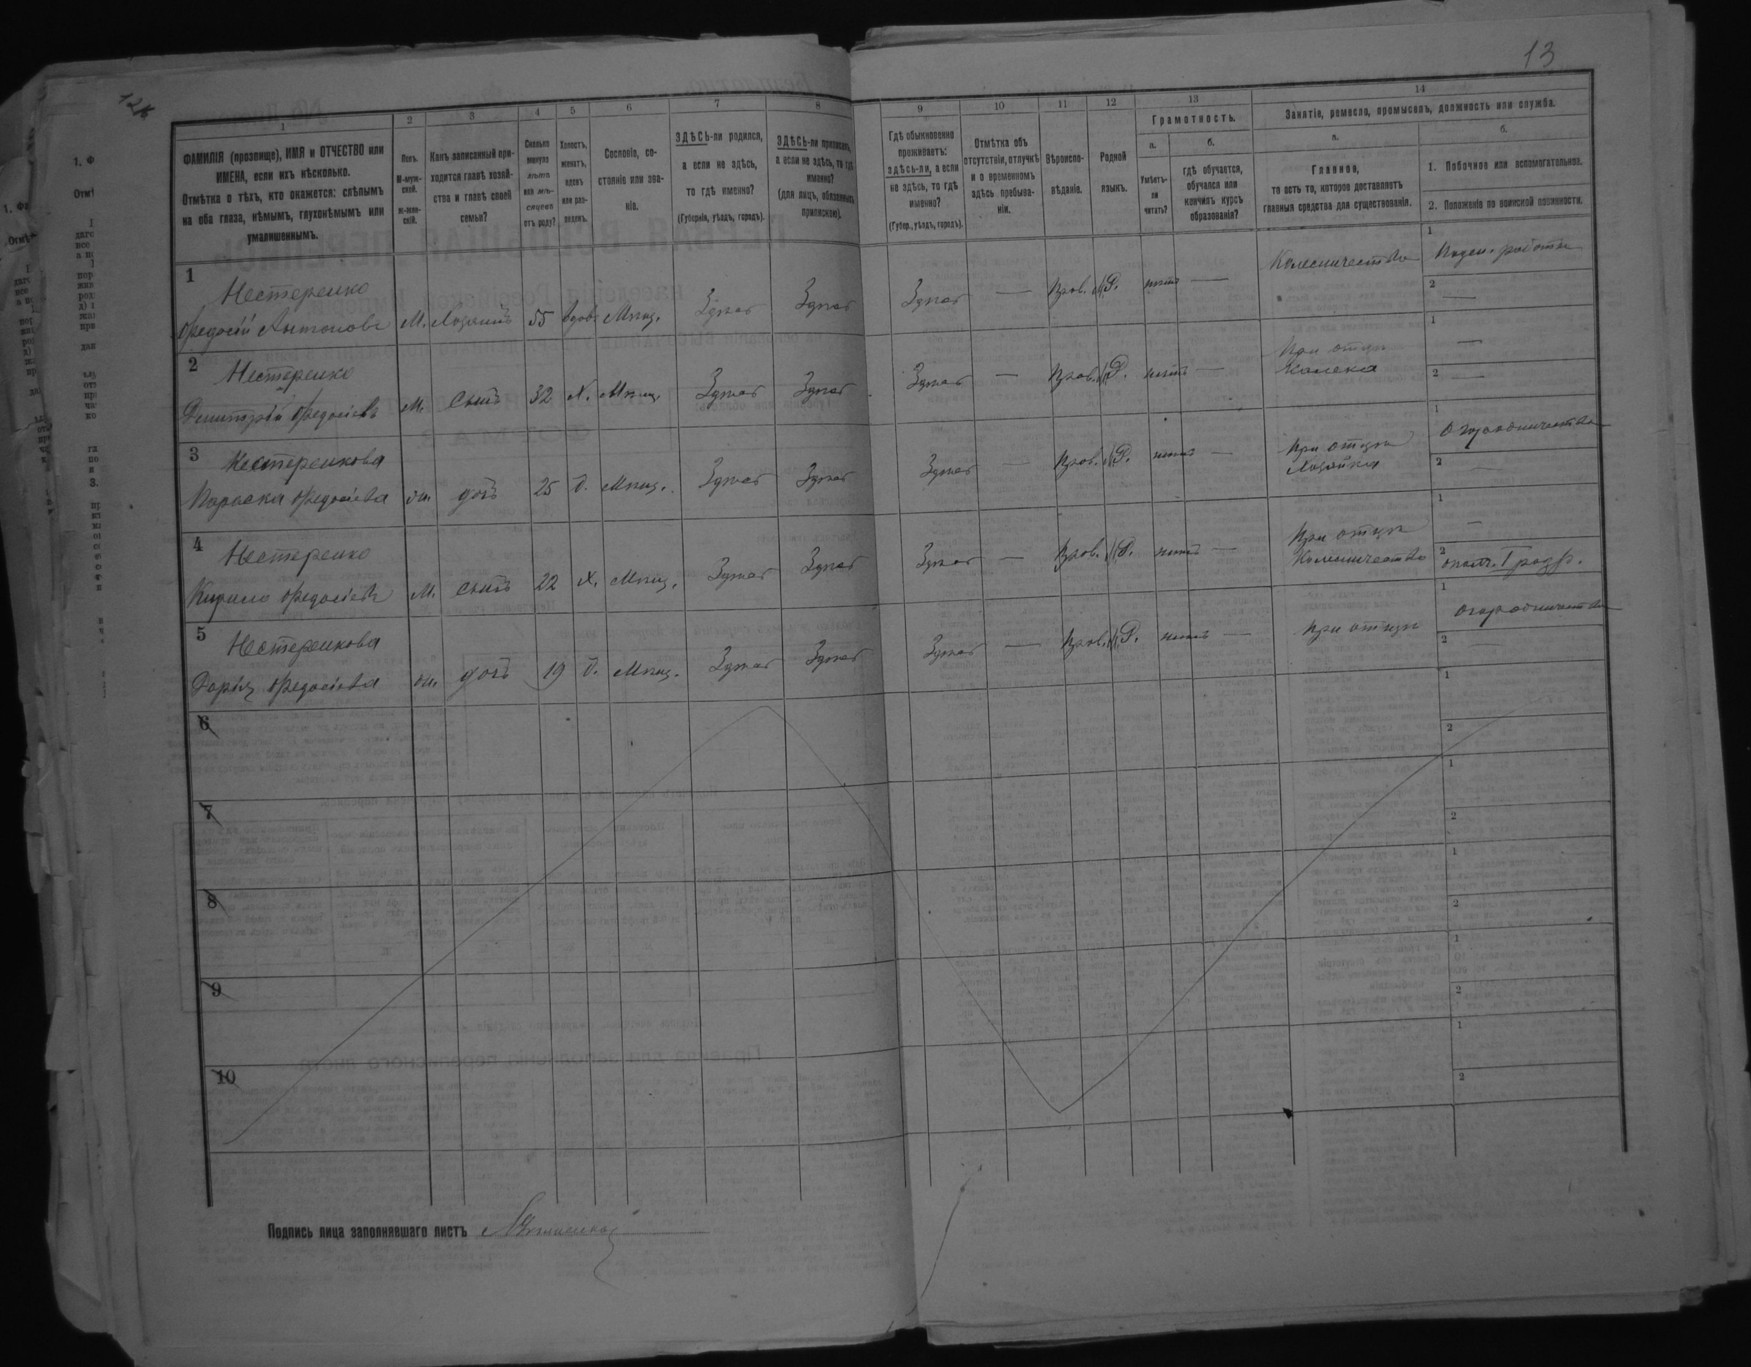 12об
13
1
2
3
4
5
6
7
8
9
10
11
12
13
14
ФАМИЛІЯ (прозвище), ИМЯ и ОТЧЕСТВО или
ИМЕНА, если ихъ нѣсколько.
Отмѣтка о тѣхъ, кто окажется: слѣпымъ
на оба глаза, нѣмымъ, глухонѣмымъ или
умалишеннымъ.
Полъ.
М-муж-
ской.
ж-жен-
скій.
Какъ записанный при-
ходится главѣ хозяй-
ства и главѣ своей
семьи?
Сколько
минуло
лѣтъ
или мѣ-
сяцевъ
отъ роду?
Холостъ,
женатъ,
вдовъ
или раз-
веденъ.
Сословіе, со-
стояніе или зва-
ніе.
ЗДѢСЬ-ли родился,
а если не здѣсь,
то гдѣ именно?
(Губернія, уѣздъ, городъ).
ЗДѢСЬ-ли приписанъ,
а если не здѣсь, то гдѣ
именно?
(для лицъ, обязанныхъ
припискою).
Гдѣ обыкновенно
проживаетъ:
здѣсь-ли, а если
не здѣсь, то гдѣ
именно?
(Губер., уѣздъ, городъ).
Отмѣтка объ
отсутствіи, отлучкѣ
и о временномъ
здѣсь пребыва-
ніи.
Вѣроиспо-
вѣданіе.
Родной
языкъ.
Грамотность.
а.
Умѣетъ-
ли
читать?
б.
гдѣ обучается,
обучался или
кончилъ курсъ
образованія?
Занятіе, ремесло, промыселъ, должность или служба.
а.
Главное,
то есть то, которое доставляетъ
главныя средства для существованія.
б.
1. Побочное или вспомогательное.
2. Положеніе по воинской повинности.
1
Нестеренко
Федосій Антоновъ М. Хозяинъ 55 вдов. Мѣщ. Здѣсь Здѣсь Здѣсь — Прав. М.Р. нѣтъ — Колесничество
1 Поден. работы
2 —
2
Нестеренко
Дмитрій Федосіевъ М. сынъ 32 х. Мѣщ. Здѣсь Здѣсь Здѣсь — Прав. М.Р. нѣтъ — При отцѣ
Калека
1 —
2 —
3
Нестеренкова
Параска Федосіева ж. дочь 25 д. Мѣщ. Здѣсь Здѣсь Здѣсь — Прав. М.Р. нѣтъ — При отцѣ
Хозяйка
1 Огородничество
2 —
4
Нестеренко
Кирило Федосіевъ М. сынъ 22 х. Мѣщ. Здѣсь Здѣсь Здѣсь — Прав. М.Р. нѣтъ — При отцѣ
Колесничество
1 —
2 ополч. I разр.
5
Нестеренкова
Дарія Федосіева ж. дочь 19 д. Мѣщ. Здѣсь Здѣсь Здѣсь — Прав. М.Р. нѣтъ — При отцѣ
1 Огородничество
2 —
6
1
2
7
1
2
8
1
2
9
1
2
10
1
2
Подпись лица заполнявшаго листъ